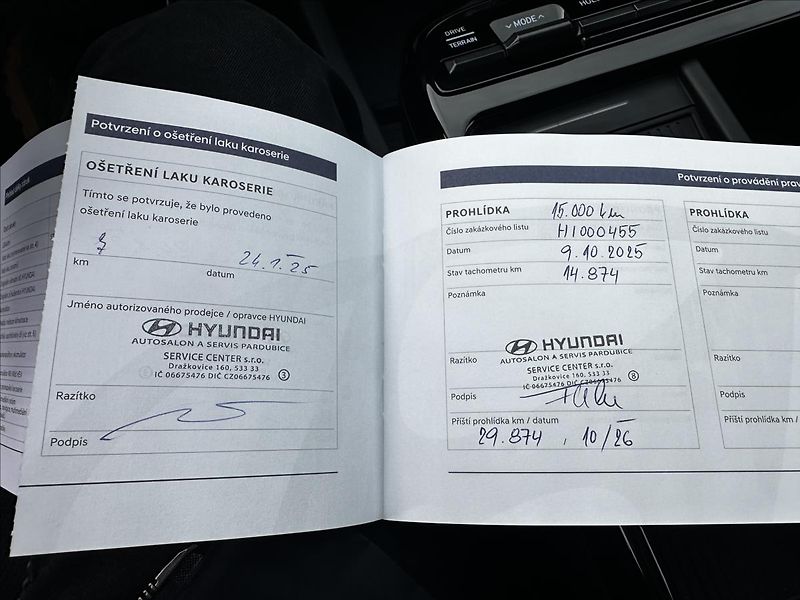 DRIVE
TERRAIN
MODE
Potvrzení o ošetření laku karoserie
OŠETŘENÍ LAKU KAROSERIE
Tímto se potvrzuje, že bylo provedeno
ošetření laku karoserie
24.1.25
km
datum
Jméno autorizovaného prodejce / opravce HYUNDAI
HYUNDAI
AUTOSALON A SERVIS PARDUBICE
SERVICE CENTER s.r.o.
Dražkovice 160, 533 33
IČ 06675476 DIČ CZ06675476 3
Razítko
Podpis
Potvrzení o provádění
PROHLÍDKA 15.000 km
Číslo zakázkového listu H1000455
Datum 9.10.2025
Stav tachometru km 14.874
Poznámka
HYUNDAI
AUTOSALON A SERVIS PARDUBICE
Razítko SERVICE CENTER s.r.o.
Dražkovice 160, 533 33
IČ 06675476 DIČ CZ06675476 8
Podpis
Příští prohlídka km / datum
29.874 , 10/26
PROHLÍDKA
Číslo zakázkového listu
Datum
Stav tachometru km
Poznámka
Razítko
Podpis
Příští prohlídka km /